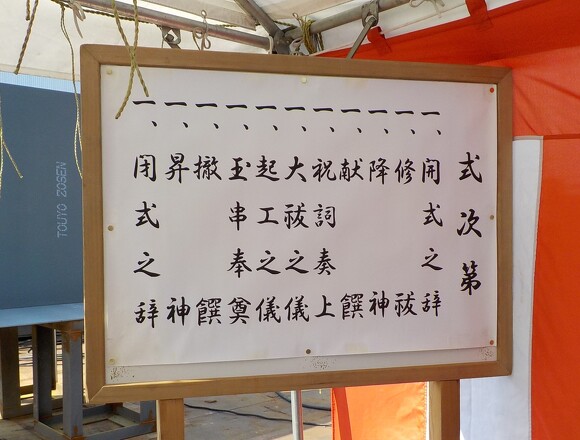 式次第
一、開式之辞
一、修祓
一、降神
一、献饌
一、祝詞奏上
一、大祓之儀
一、起工之儀
一、玉串奉奠
一、撤饌
一、昇神
一、閉式之辞
TOUYO ZOSEN